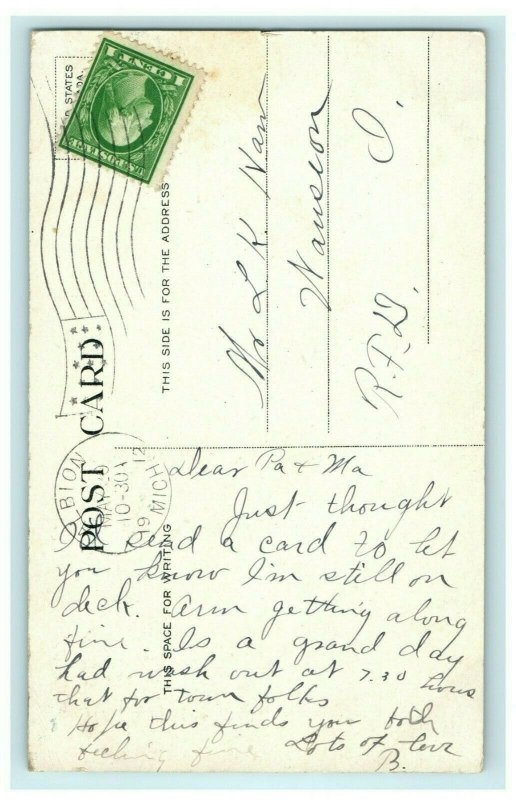 POST CARD
THIS SPACE FOR WRITING
THIS SIDE IS FOR THE ADDRESS
STATES
U.S. POSTAGE
1 CENT 1
ALBION
10-30A
1912
MICH.
Mr L K
Wauseon O.
R.F.D.
Dear Pa + Ma
Just thought
I'd send a card to let
you know I'm still on
deck. Arm getting along
fine. Is a grand day
had wash out at 7.30 hows
that for town folks
Hope this finds you both
feeling fine Lots of love
B.